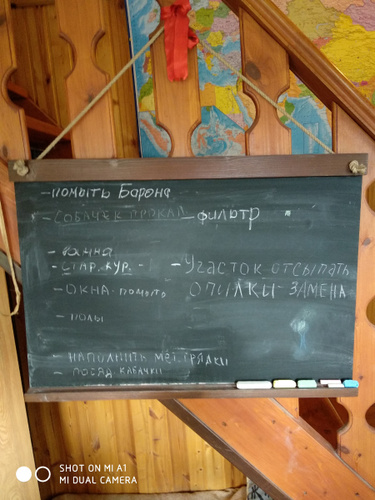 -ПОМЫТЬ Барона
-СОБАЧЕК ПРОКАП -ФИЛЬТР
-ВАННА
-СТИР. КУР.-
-Участок отсыпать
-ОКНА-ПОМЫТЬ
ОПИЛКИ-ЗАМЕНА
-ПОЛЫ
-НАПОЛНИТЬ МЕТ. ГРЯДКИ
-ПОСАД. КАБАЧКИ
SHOT ON MI A1
MI DUAL CAMERA